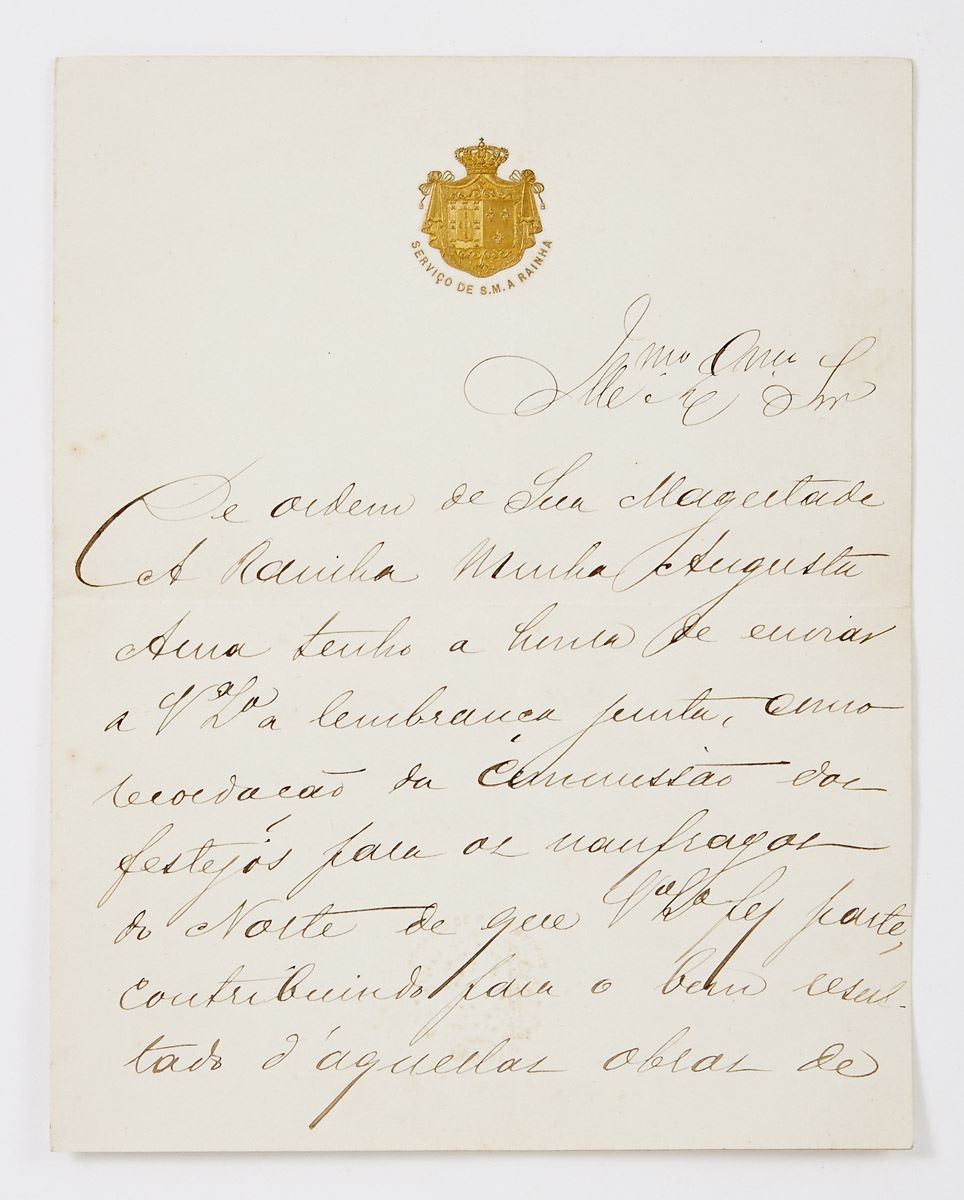 SERVIÇO DE S. M. A RAINHA
Illmo. Exmo Snr
De ordem de Sua Magestade
A Rainha Minha Augusta
Ama tenho a honra de enviar
a Va. Sa. a lembrança junta, como
recordação da Commissão dos
festejos para os naufragos
do Norte de que Va. Sa. fez parte,
contribuindo para o bom resul-
tado d'aquellas obras de